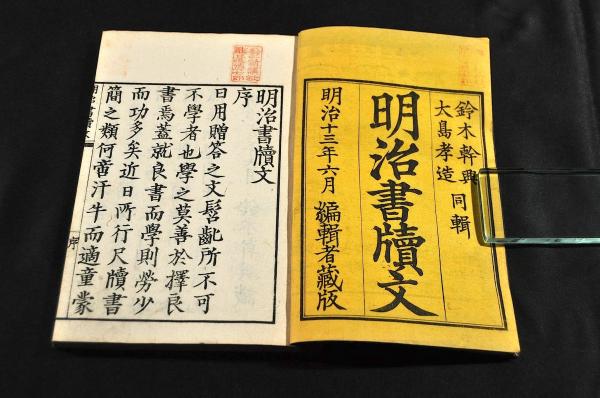 鈴木幹興
大島孝造
同輯
明治書牘文
明治十三年六月
編輯者藏版
明治書牘文
序
日用贈答之文髫齔所不可
不學者也學之莫善於擇良
書焉蓋就良書而學則勞少
而功多矣近日所行尺牘書
簡之類何啻汗牛而適童蒙
序